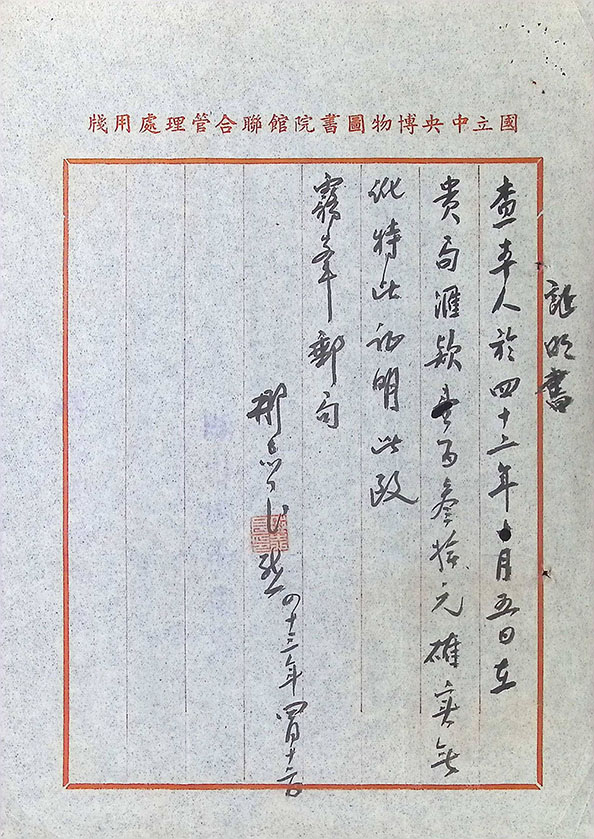 國立中央博物圖書院館聯合管理處用牋
證明書
查本人於四十二年十月五日在
貴局滙款壹百叁拾元確實無
訛特此証明此致
霧峯郵局
那志良 四十三年四月十二日